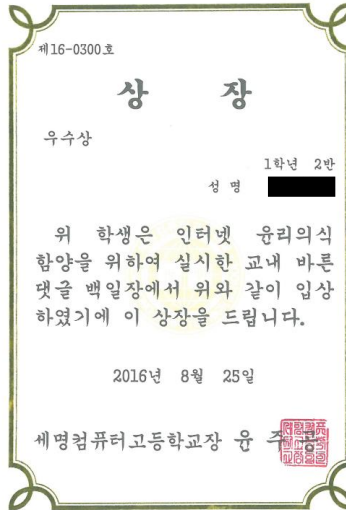 제16-0300호
상 장
우수상
1학년 2반
성 명
위 학생은 인터넷 윤리의식
함양을 위하여 실시한 교내 바른
댓글 백일장에서 위와 같이 입상
하였기에 이 상장을 드립니다.
2016년 8월 25일
세명컴퓨터고등학교장 윤 주